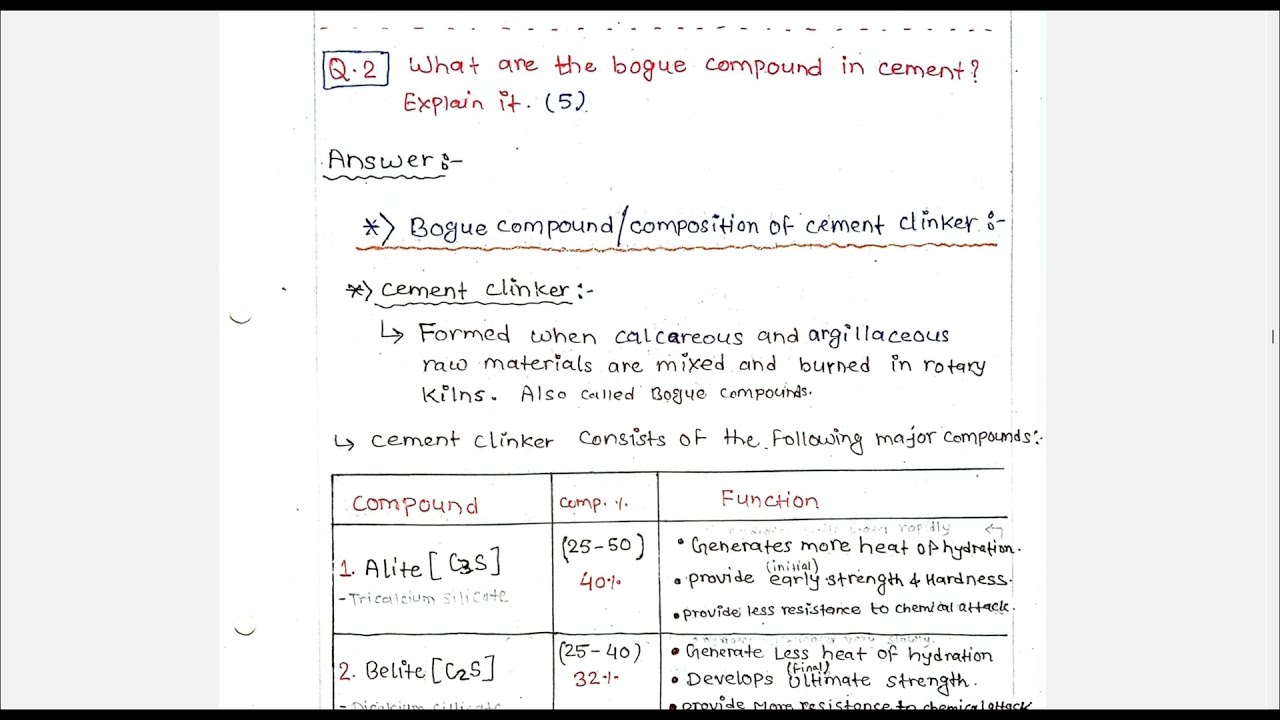 Q.2 What are the bogue compound in cement?
Explain it. (5)
Answer:-
*) Bogue compound/composition of cement clinker :-
*) cement clinker:-
↳ Formed when calcareous and argillaceous
raw materials are mixed and burned in rotary
kilns. Also called Bogue compounds.
↳ cement clinker consists of the following major compounds:-
compound comp. % Function
rapidly
1. Alite [C3S] (25-50) • Generates more heat of hydration.
(initial)
40% • provide early strength & Hardness.
- Tricalcium silicate
• provide less resistance to chemical attack.
very slowly.
2. Belite [C2S] (25-40) • Generate Less heat of hydration
(final)
32% • Develops Ultimate strength.
- Dicalcium silicate • provide More resistance to chemical attack